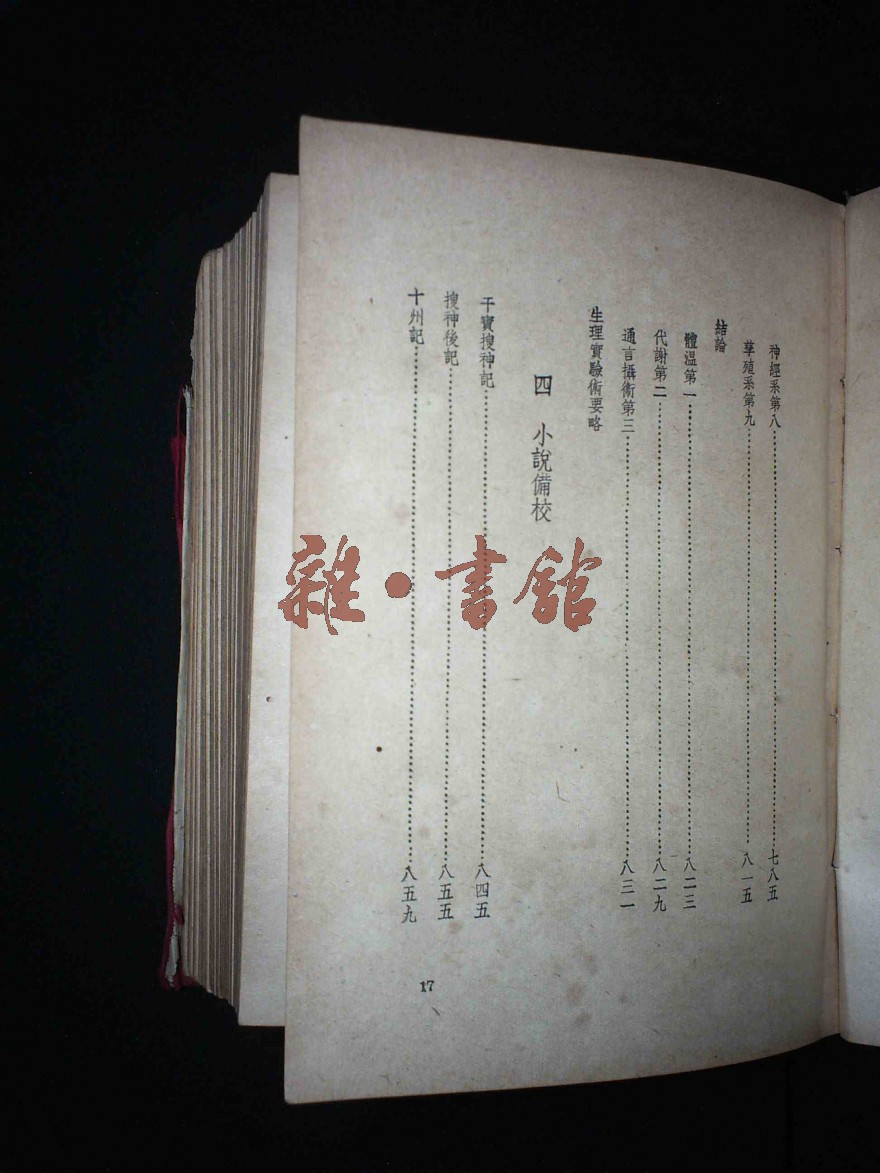 神經系第八……七八五
孳殖系第九……八一五
結論
體溫第一……八二三
代謝第二……八二九
通言攝衛第三……八三一
生理實驗術要略
四 小說備校
干寶搜神記……八四五
搜神後記……八五五
十州記……八五九
17
雜·書館